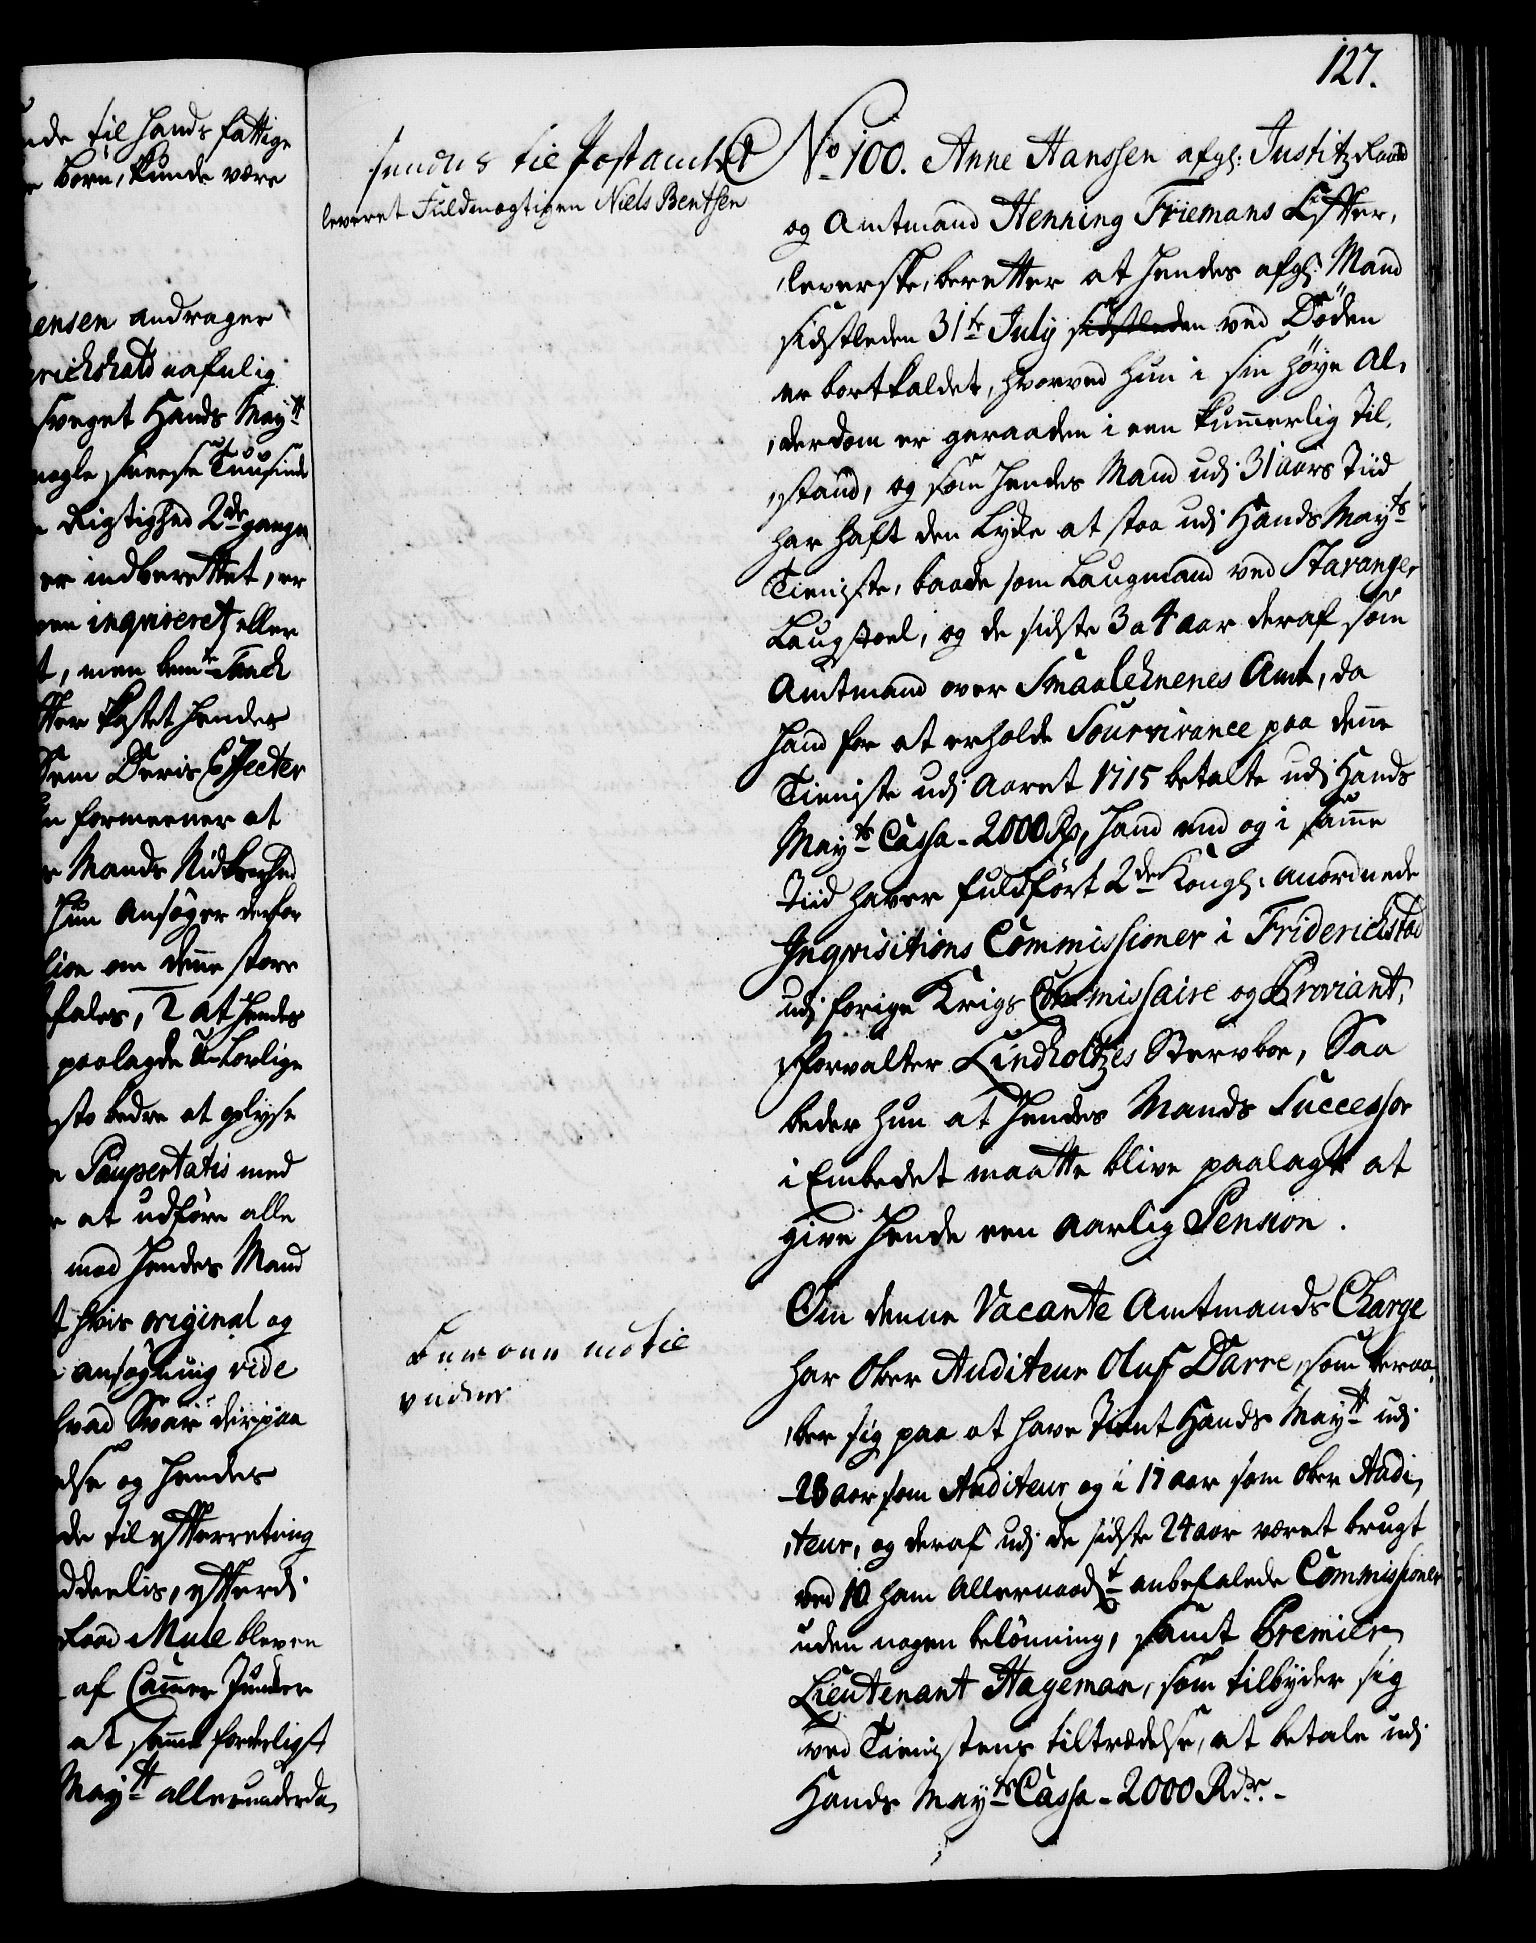 127.
ede til hands fattige
børn, kunde være
ensen andrager
svoget Hands May.tt
Rigtighed 2de gange
er indberettet, er
inqvireret eller
t, men bem.te Tanck
kastet hendes
Effecter
formeener at
Mands Nidkierhed
hun Ansøger derfor
om denne store
fales, 2 at hendes
paalagde U-Lovlige
bedre at oplyse
Paupertatis med
at udføre alle
mod hendes Mand
hvis original og
ansøgning vide
hvad Svar derpaa
else og hendes
de til efterretning
Raad Mule bleven
af Cammer Junker
at samme forderligst
May.tt allerunderda,
sendes til Postamtet
leveret Fuldmægtigen Niels Bentsen
No 100. Anne Hanssen afgl: Justitz Raad
og Amtmand Henning Friemans Efter,
,leverske, beretter at hendes afgl: Mand
sidstleden 31te July sidstleden ved Døden
er bortkaldet, hvorved hun i sin høye Al,
,derdom er geraaden i een kummerlig Til,
,stand, og som hendes Mand udj 31 aars Tiid
har haft den Lyke at staa udj Hands May.ts
Tieniste, baade som Laugmand ved Stavanger
Laugstoel, og de sidste 3 a 4 aar deraf som
Amtmand over Smaalehnenes Amt, da
hand for at erholde Sourvivance paa denne
Tieniste udj Aaret 1715 betalte udj Hands
May.ts Cassa - 2000 Rd, hand end og i samme
Tiid haver fuldført 2de Kongl: anordnede
Inqvisitions Commissioner i Friderichstad
udj forige Krigs Commissaire og Proviant,
,forvalter Lindholtzes Stervboe, Saa
beder hun at hendes Mands Successor
i Embedet maatte blive paalagt at
give hende een aarlig Pension.
Om denne Vacante Amtmands Charge
har Ober Auditeur Oluf Darre, som beraa,
,ber sig paa at have tient Hands May.tt udj
28 aar som Auditeur og i 17 aar som Ober Audi,
,teur, og deraf udj de sidste 24 aar været brugt
ved 10 ham Allernaad.st anbefalede Commissioner
uden nogen belønning, samt Premier
Lieutenant Hageman, som tilbyder sig
ved Tienistens tiltrædelse, at betale udj
Hands May.ts Cassa - 2000 Rdr. -